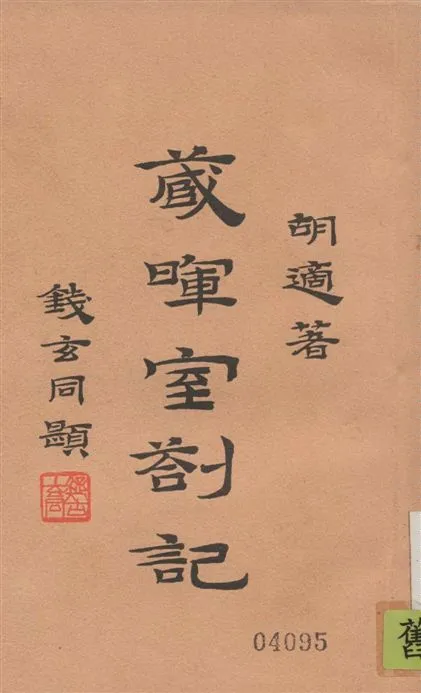 胡適著
藏暉室劄記
錢玄同題
04095
舊